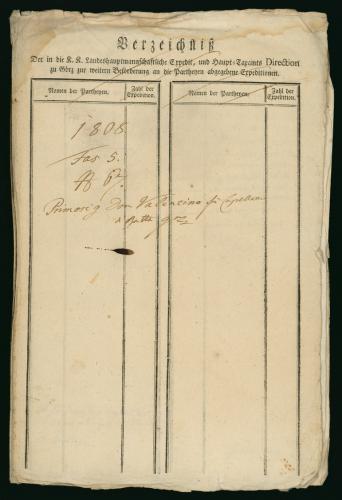 Verzeichniß
Der in die K. K. Landeshauptmannschaftliche Expedit, und Haupt-Taxamts Direction
zu Görz zur weitern Beförderung an die Partheyen abgegebene Expeditionen.
Namen der Partheyen.
Zahl der
Expedition.
Namen der Partheyen.
Zahl der
Expedition.
1808
Fas 5.
Primosig Don Valentino